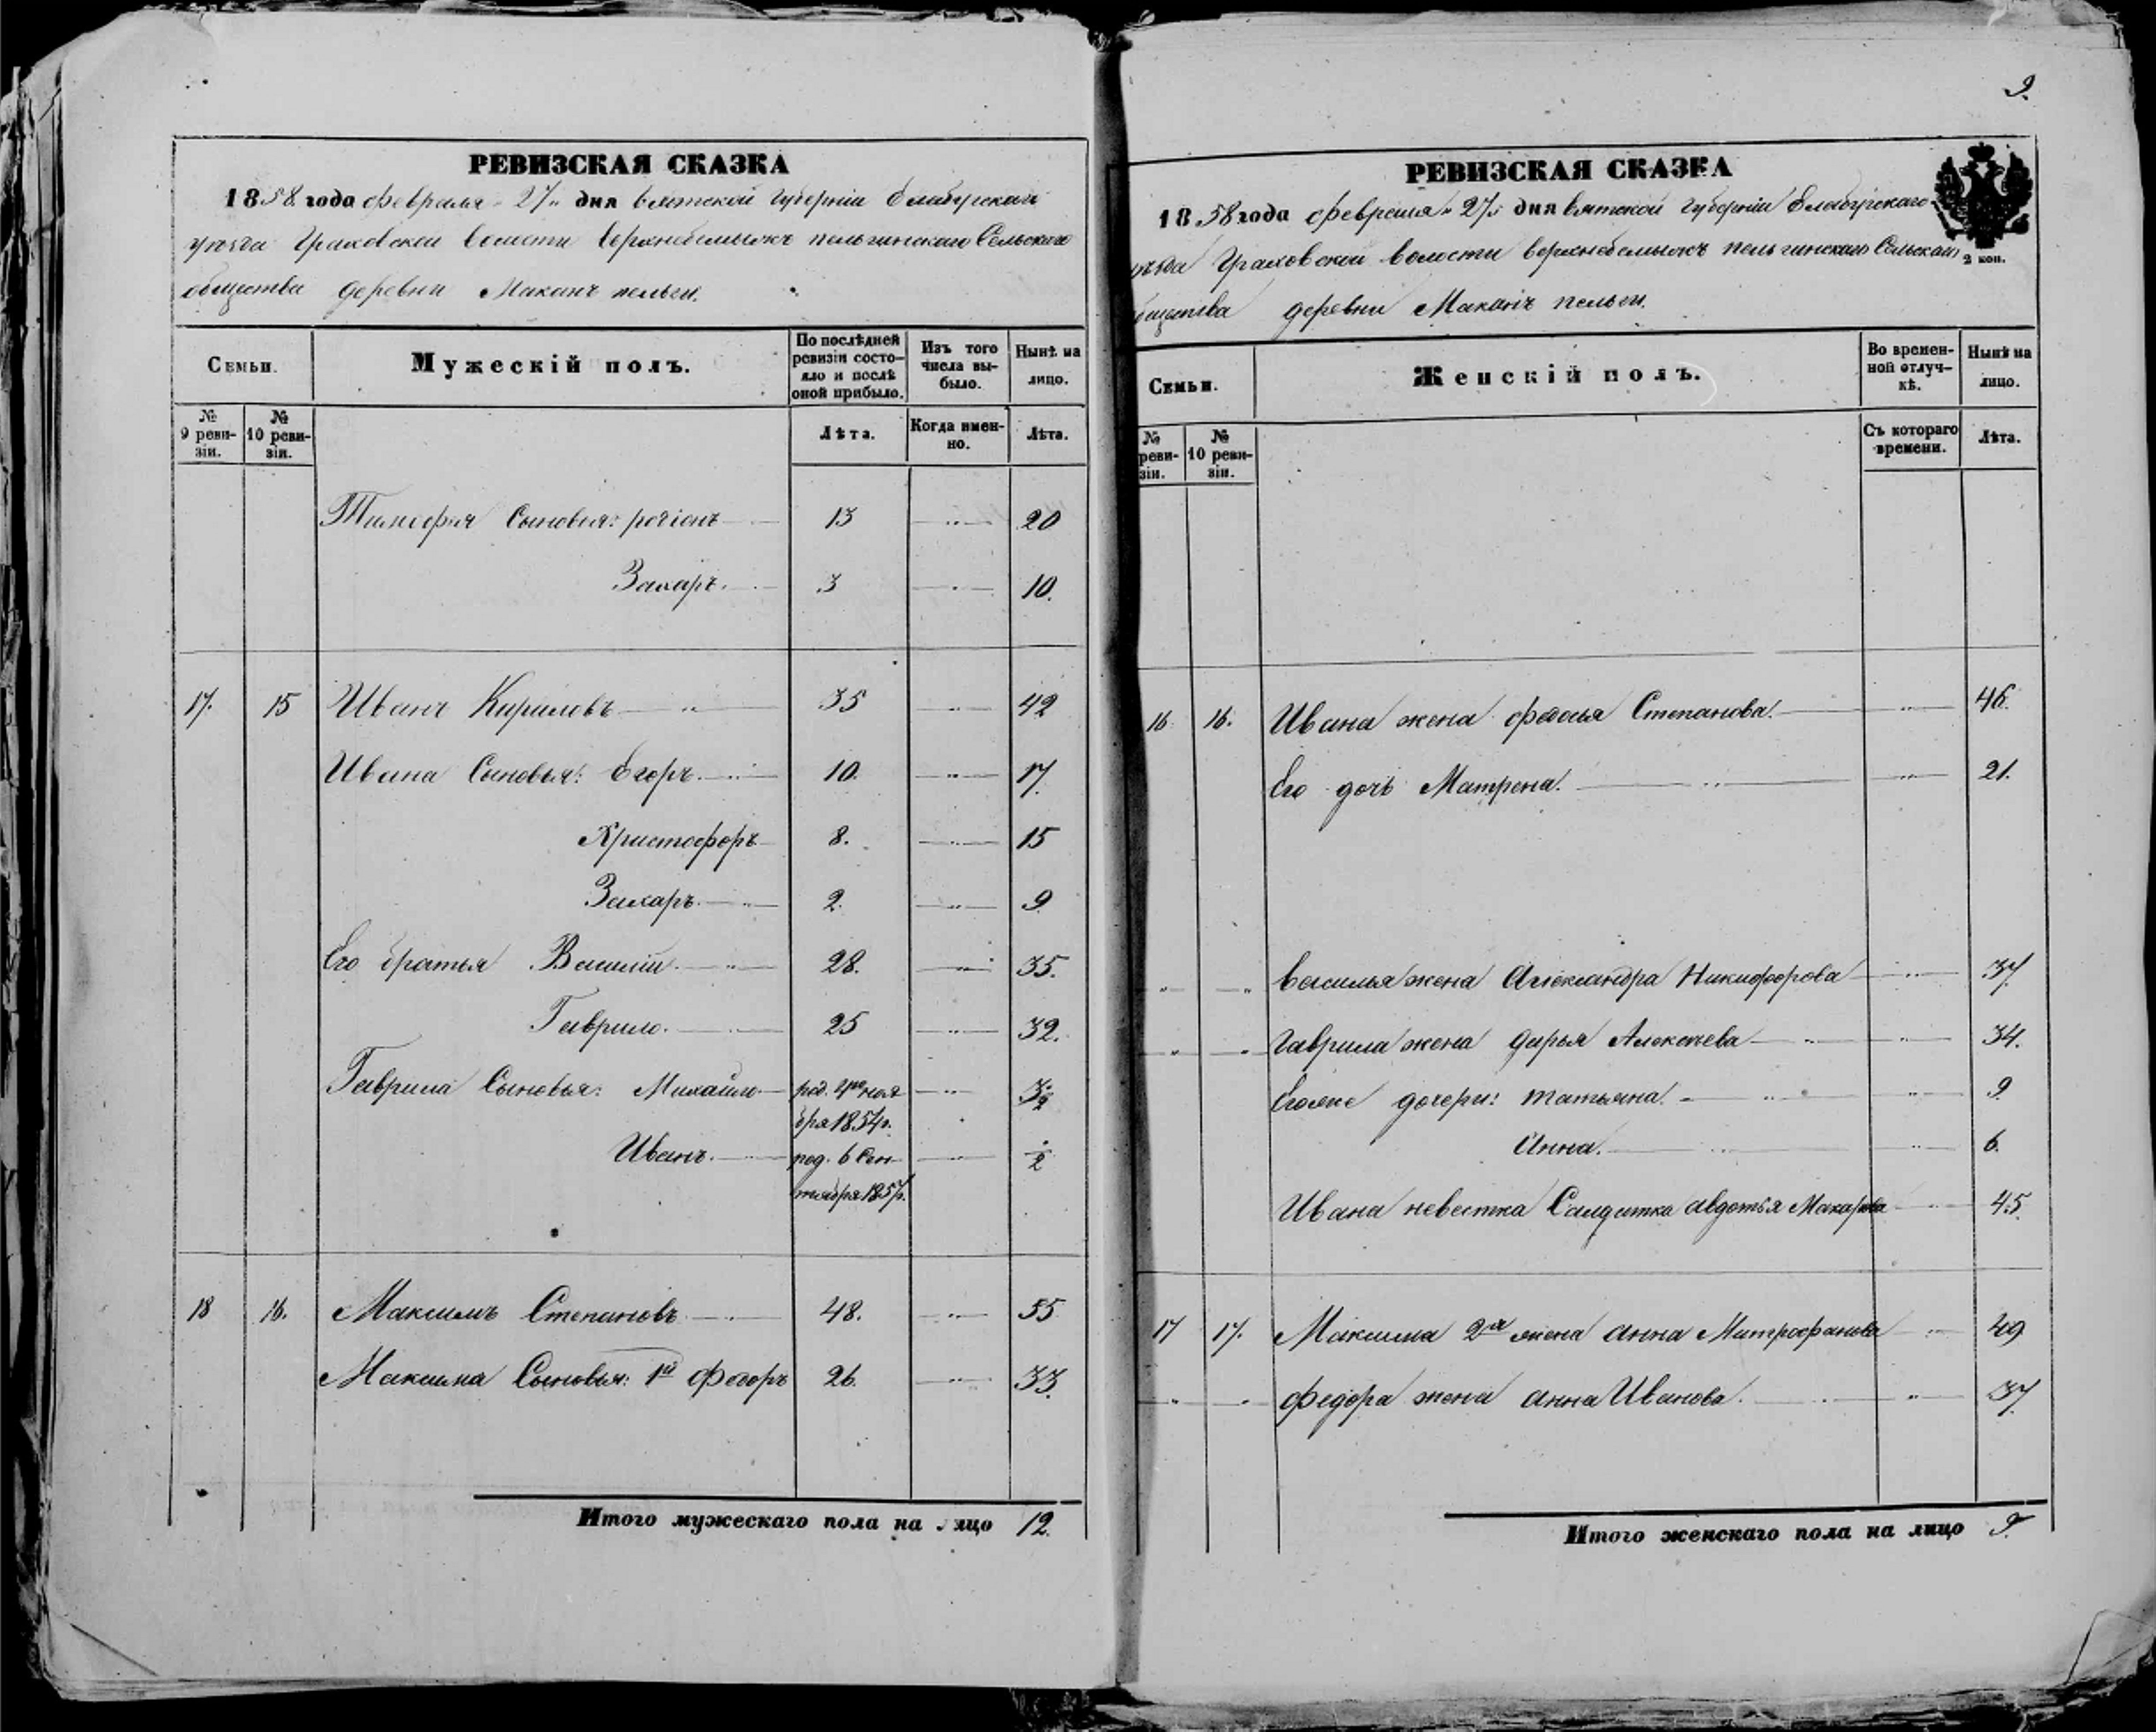 РЕВИЗСКАЯ СКАЗКА
1858 года февраля „27„ дня Вятской губернiи Елабугскаго
уѣзда Граховской волости Верхнебемыжъ пельгинскаго Сельскаго
общества деревни Маканъ пельги.
Семьи.
Мужескiй полъ.
По послѣдней ревизiи состояло и послѣ оной прибыло.
Изъ того числа выбыло.
Нынѣ на лицо.
№ 9 ревизiи.
№ 10 ревизiи.
Лѣта.
Когда именно.
Лѣта.
Тимофея Сыновья: родiонъ 13 20
Захаръ. 3 10.
17. 15 Иванъ Кириловъ 35 42
Ивана Сыновья: Егоръ. 10. 17.
Христофоръ 8. 15
Захаръ. 2. 9
Его братья Василiй. 28. 35.
Гаврило. 25 32.
Гаврила Сыновья: Михайло
род. ноя
бря 1854г.
Иванъ. род. 6 Сен-
тября 1857г.
18 16. Максимъ Степановъ 48. 55
Максима Сыновья: 1й Федоръ 26. 33.
Итого мужескаго пола на лицо 12.
9.
РЕВИЗСКАЯ СКАЗКА
1858 года февраля „27„ дня Вятской губернiи Елабугскаго
уѣзда Граховской волости Верхнебемыжъ пельгинскаго Сельскаго
общества деревни Маканъ пельги.
2 коп.
Семьи.
Женскiй полъ.
Во временной отлучкѣ.
Нынѣ на лицо.
№ ревизiи.
№ 10 ревизiи.
Съ котораго времени.
Лѣта.
16 16. Ивана жена федосья Степанова. 46.
Его дочь Матрена. 21.
Василья жена Александра Никифорова 37.
Гаврила жена дарья Алексѣева 34.
Егоже дочери: татьяна. 9
Анна. 6.
Ивана невестка Салдатка авдотья Макарова 45.
17 17. Максима 2я жена анна Митрофанова 49
федора жена анна Иванова. 37.
Итого женскаго пола на лицо 9.